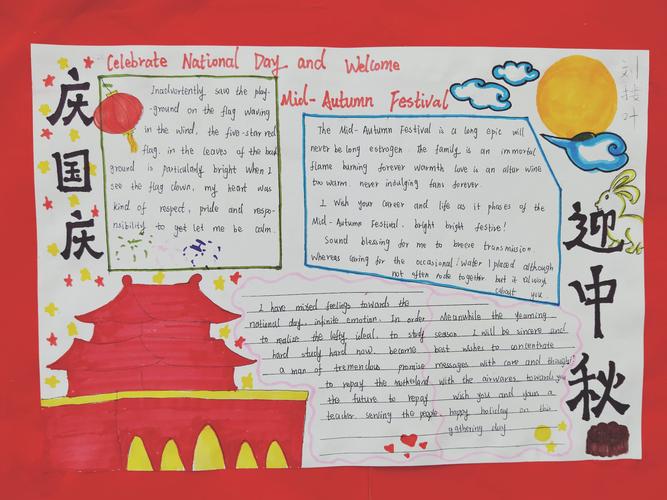 Celebrate National Day and Welcome
Mid-Autumn Festival
庆
国
庆
Inadvertently saw the play-
-ground on the flag waving
in the wind, the five-star red
flag, in the leaves of the back
ground is particularly bright when I
see the flag down, my heart was
kind of respect, pride and respo-
nsibility to get let me be calm.
The Mid-Autumn Festival is a long epic will
never be long estrogen. The family is an immortal
flame burning forever warmth love is an altar wine
too warm, never indulging fans forever.
I Wish your career and life as it phases of the
Mid-Autumn Festival, bright bright festive!
Sound blessing for me to breeze transmission.
whereas caring for the occasional! Water I placed although
not often rode together but it always
about you
I have mixed feelings towards the
national day, infinite emotion. In order Meanwhile the yearning
to realize the lofty ideal, to study season. I will be sincere and
hard study hard now, become best wishes to concentrate
a man of tremendous promise messages with care and thoughts
to repay the motherland with the airwaves towards you
the future to repay wish you and your a
teacher, serving the people. happy holiday on this
gathering day
迎
中
秋